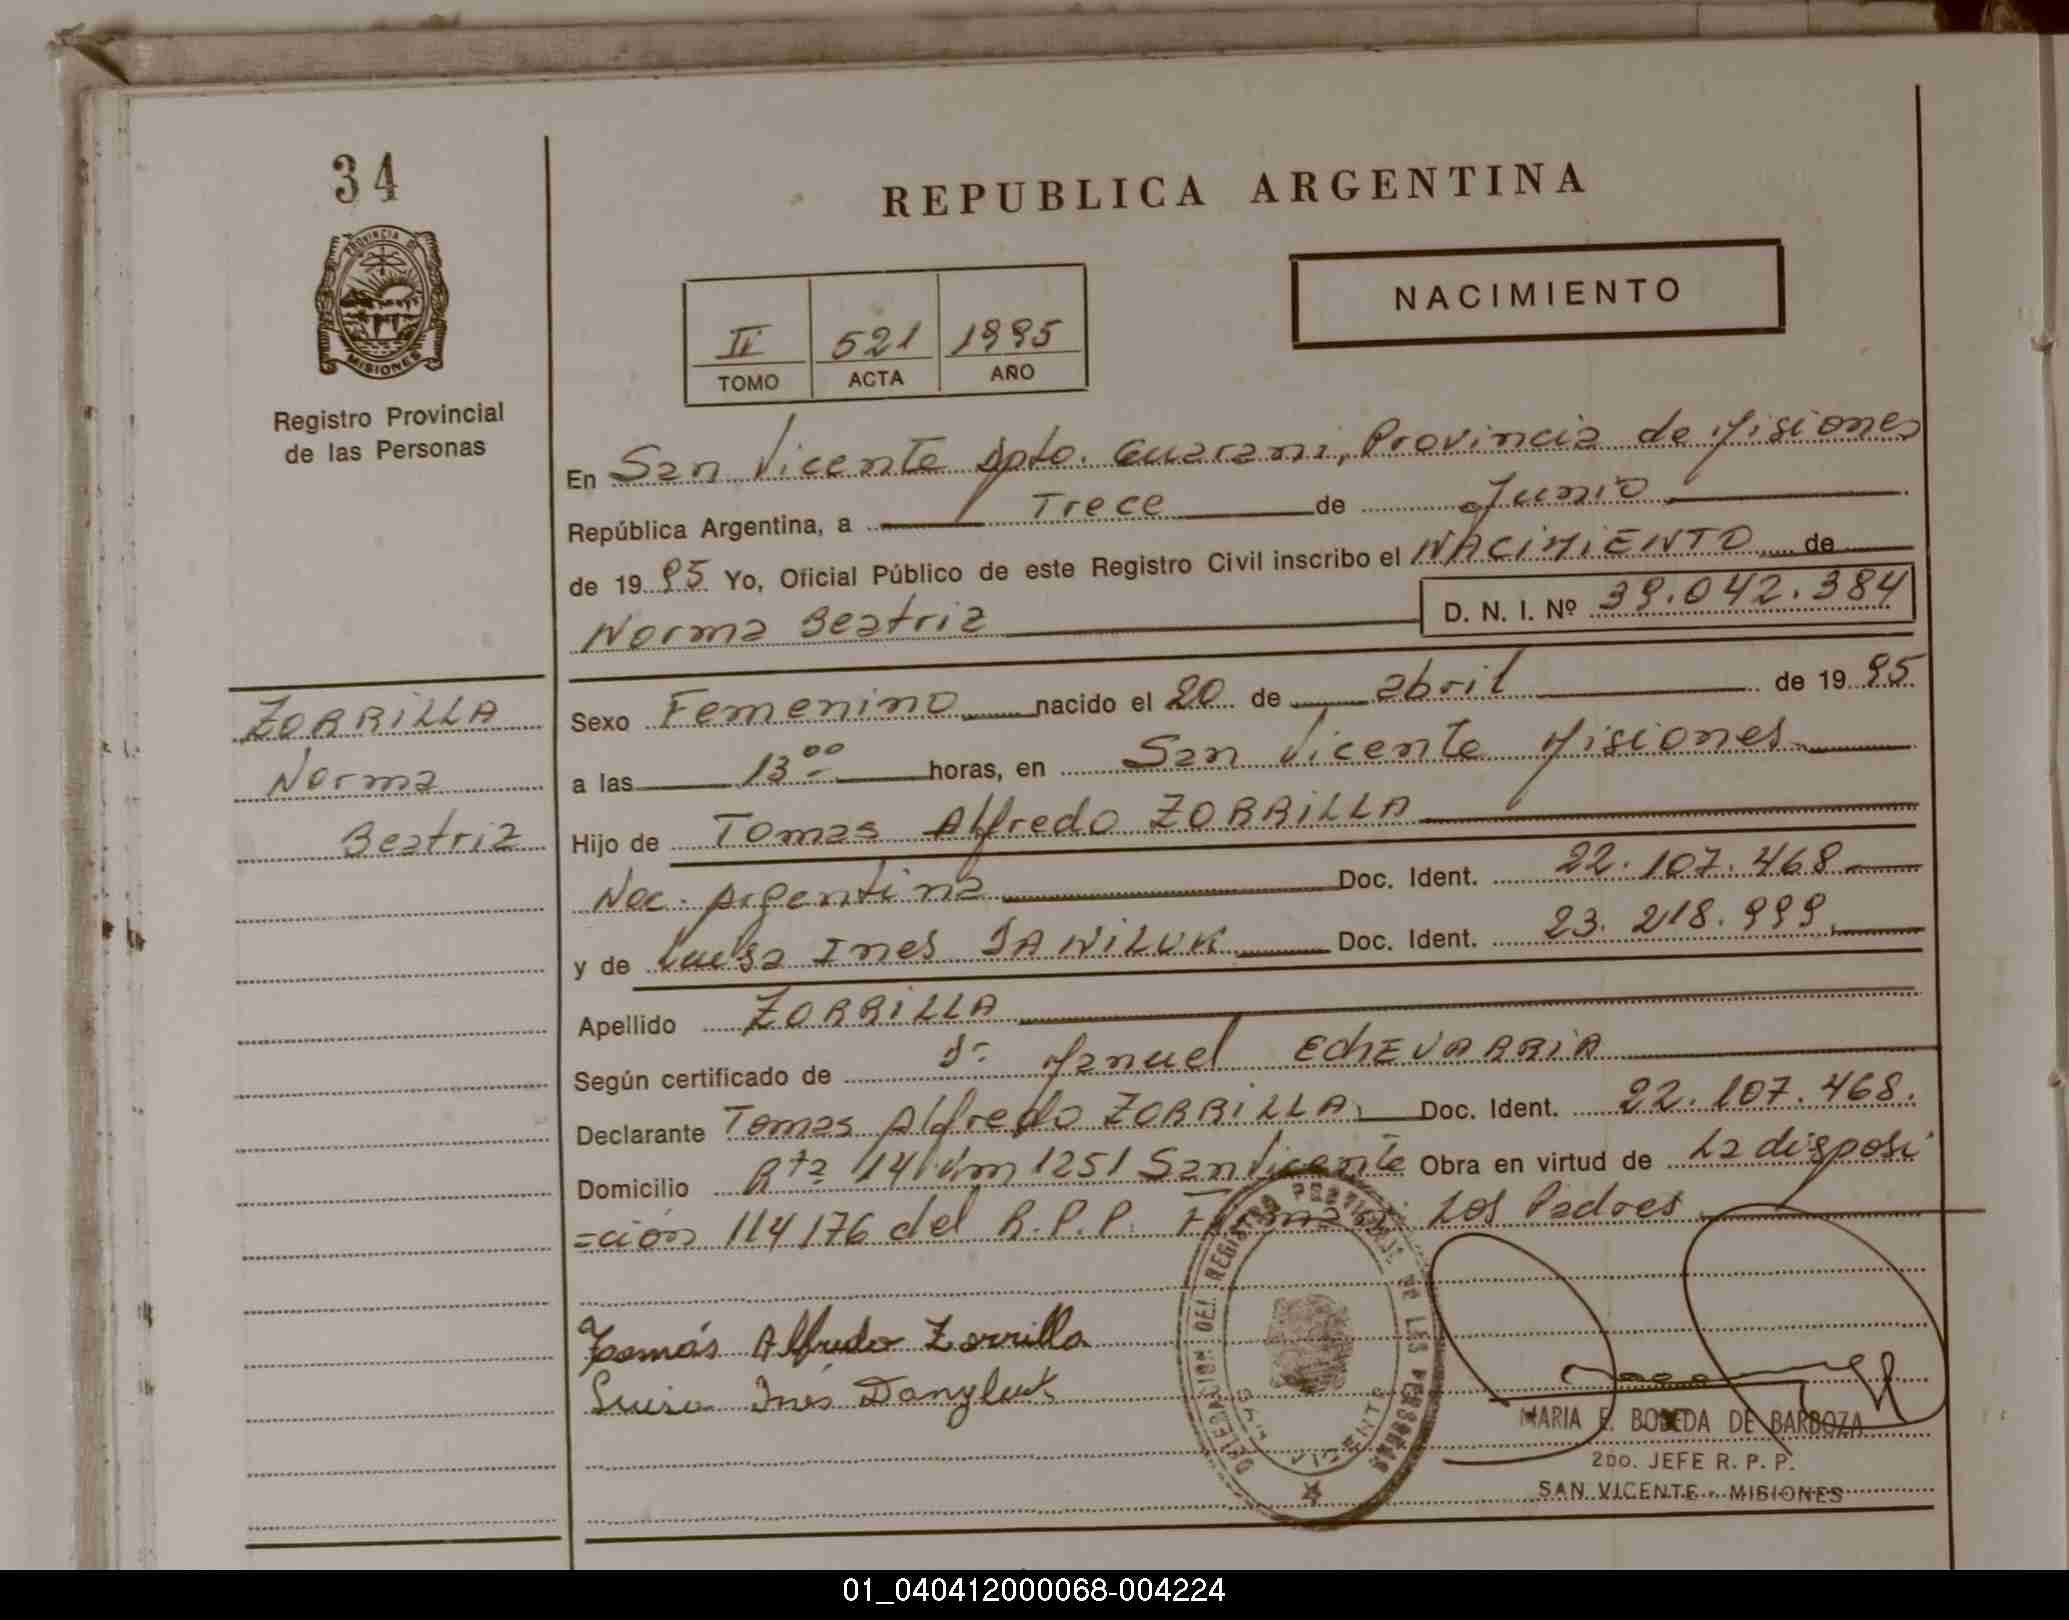 34
REPUBLICA ARGENTINA
PROVINCIA DE
MISIONES
Registro Provincial
de las Personas
NACIMIENTO
II 521 1995
TOMO ACTA AÑO
En San Vicente Dpto. Guarani, Provincia de Misiones
República Argentina, a Trece de Junio
de 19 95 Yo, Oficial Público de este Registro Civil inscribo el NACIMIENTO de
Norma Beatriz D. N. I. Nº 39.042.384
ZORRILLA
Norma
Beatriz
Sexo Femenino nacido el 20 de abril de 19 95
a las 13 00 horas, en San Vicente Misiones
Hijo de Tomas Alfredo ZORRILLA
Nac. Argentina Doc. Ident. 22.107.468
y de Luisa Ines DANILUK Doc. Ident. 23.218.999
Apellido ZORRILLA
Según certificado de Dr Manuel ECHEVARRIA
Declarante Tomas Alfredo ZORRILLA Doc. Ident. 22.107.468.
Domicilio Rta 14 Km 1251 San Vicente Obra en virtud de La disposi
=ción 114/76 del R.P.P. Los Padres
Tomás Alfredo Zorrilla
Luisa Inés Danyluk
DELEGACION DEL REGISTRO PROVINCIAL DE LAS PERSONAS
SAN VICENTE
MARIA E. BOBEDA DE BARBOZA
2DO. JEFE R. P. P.
SAN VICENTE - MISIONES
01_040412000068-004224